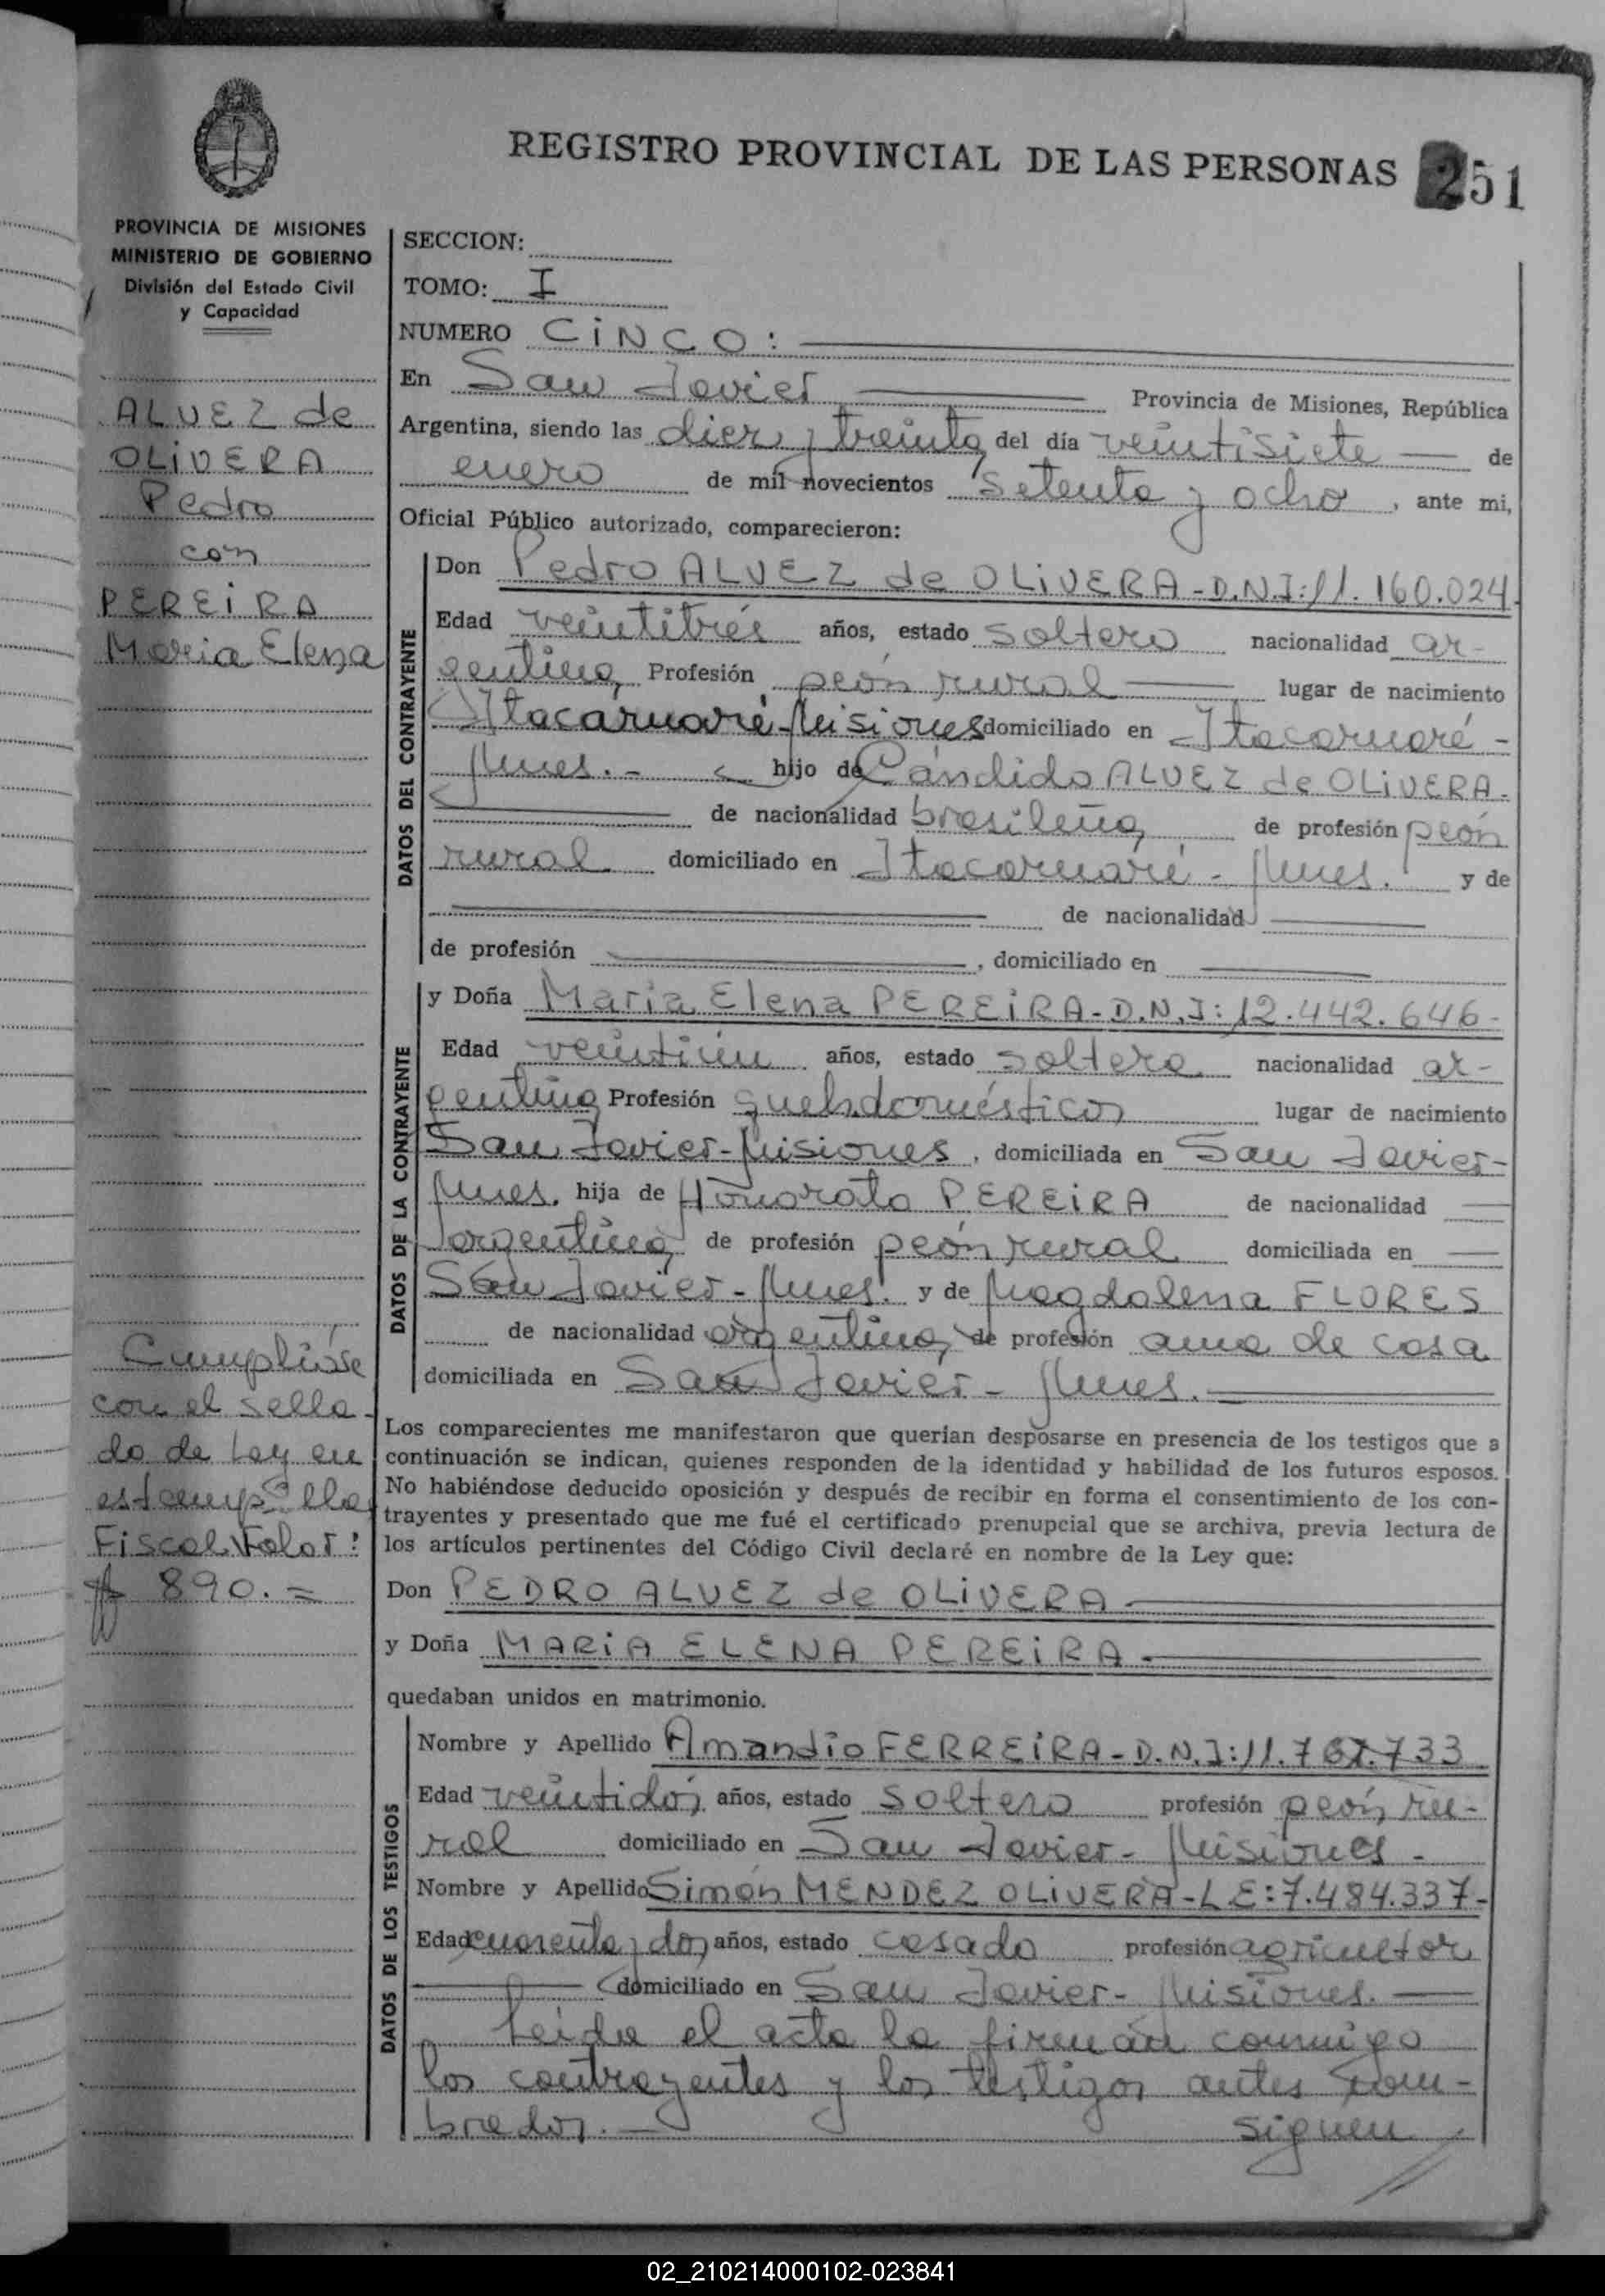 REGISTRO PROVINCIAL DE LAS PERSONAS 251
PROVINCIA DE MISIONES
MINISTERIO DE GOBIERNO
División del Estado Civil
y Capacidad
ALVEZ de
OLIVERA
Pedro
con
PEREIRA
Maria Elena
Cumplióse
con el sella-
do de Ley en
estampilla
Fiscal Valor:
$ 890.=
SECCION:
TOMO: I
NUMERO CINCO:
En San Javier Provincia de Misiones, República
Argentina, siendo las diez y treinta del día veintisiete de
enero de mil novecientos setenta y ocho, ante mi,
Oficial Público autorizado, comparecieron:
DATOS DEL CONTRAYENTE
Don Pedro ALVEZ de OLIVERA-D.N.I:11.160.024.
Edad veintitrés años, estado soltero nacionalidad ar-
gentina, Profesión peón rural lugar de nacimiento
Itacaruaré-Misiones domiciliado en Itacaruaré-
Mnes.- hijo de Cándido ALVEZ de OLIVERA.
de nacionalidad brasileña, de profesión peón
rural domiciliado en Itacaruaré-Mnes. y de
de nacionalidad
de profesión , domiciliado en
DATOS DE LA CONTRAYENTE
y Doña Maria Elena PEREIRA-D.N.I:12.442.646-
Edad veintiún años, estado soltera nacionalidad ar-
gentina Profesión queh.domésticos lugar de nacimiento
San Javier-Misiones, domiciliada en San Javier-
Mnes. hija de Honorato PEREIRA de nacionalidad
argentina, de profesión peón rural domiciliada en
San Javier-Mnes. y de Magdalena FLORES
de nacionalidad argentina, de profesión ama de casa
domiciliada en San Javier-Mnes.
Los comparecientes me manifestaron que querían desposarse en presencia de los testigos que a
continuación se indican, quienes responden de la identidad y habilidad de los futuros esposos.
No habiéndose deducido oposición y después de recibir en forma el consentimiento de los con-
trayentes y presentado que me fué el certificado prenupcial que se archiva, previa lectura de
los artículos pertinentes del Código Civil declaré en nombre de la Ley que:
Don PEDRO ALVEZ de OLIVERA
y Doña MARIA ELENA PEREIRA
quedaban unidos en matrimonio.
DATOS DE LOS TESTIGOS
Nombre y Apellido Amandio FERREIRA-D.N.I:
Edad veintidós años, estado soltero profesión peón ru-
ral domiciliado en San Javier-Misiones-
Nombre y Apellido Simón MENDEZ OLIVERA-LE:7.484.337-
Edad cuarenta y dos años, estado casado profesión agricultor
domiciliado en San Javier-Misiones.
Leida el acta la firman conmigo
los contrayentes y los testigos antes nom-
brados.- siguen
02_210214000102-023841